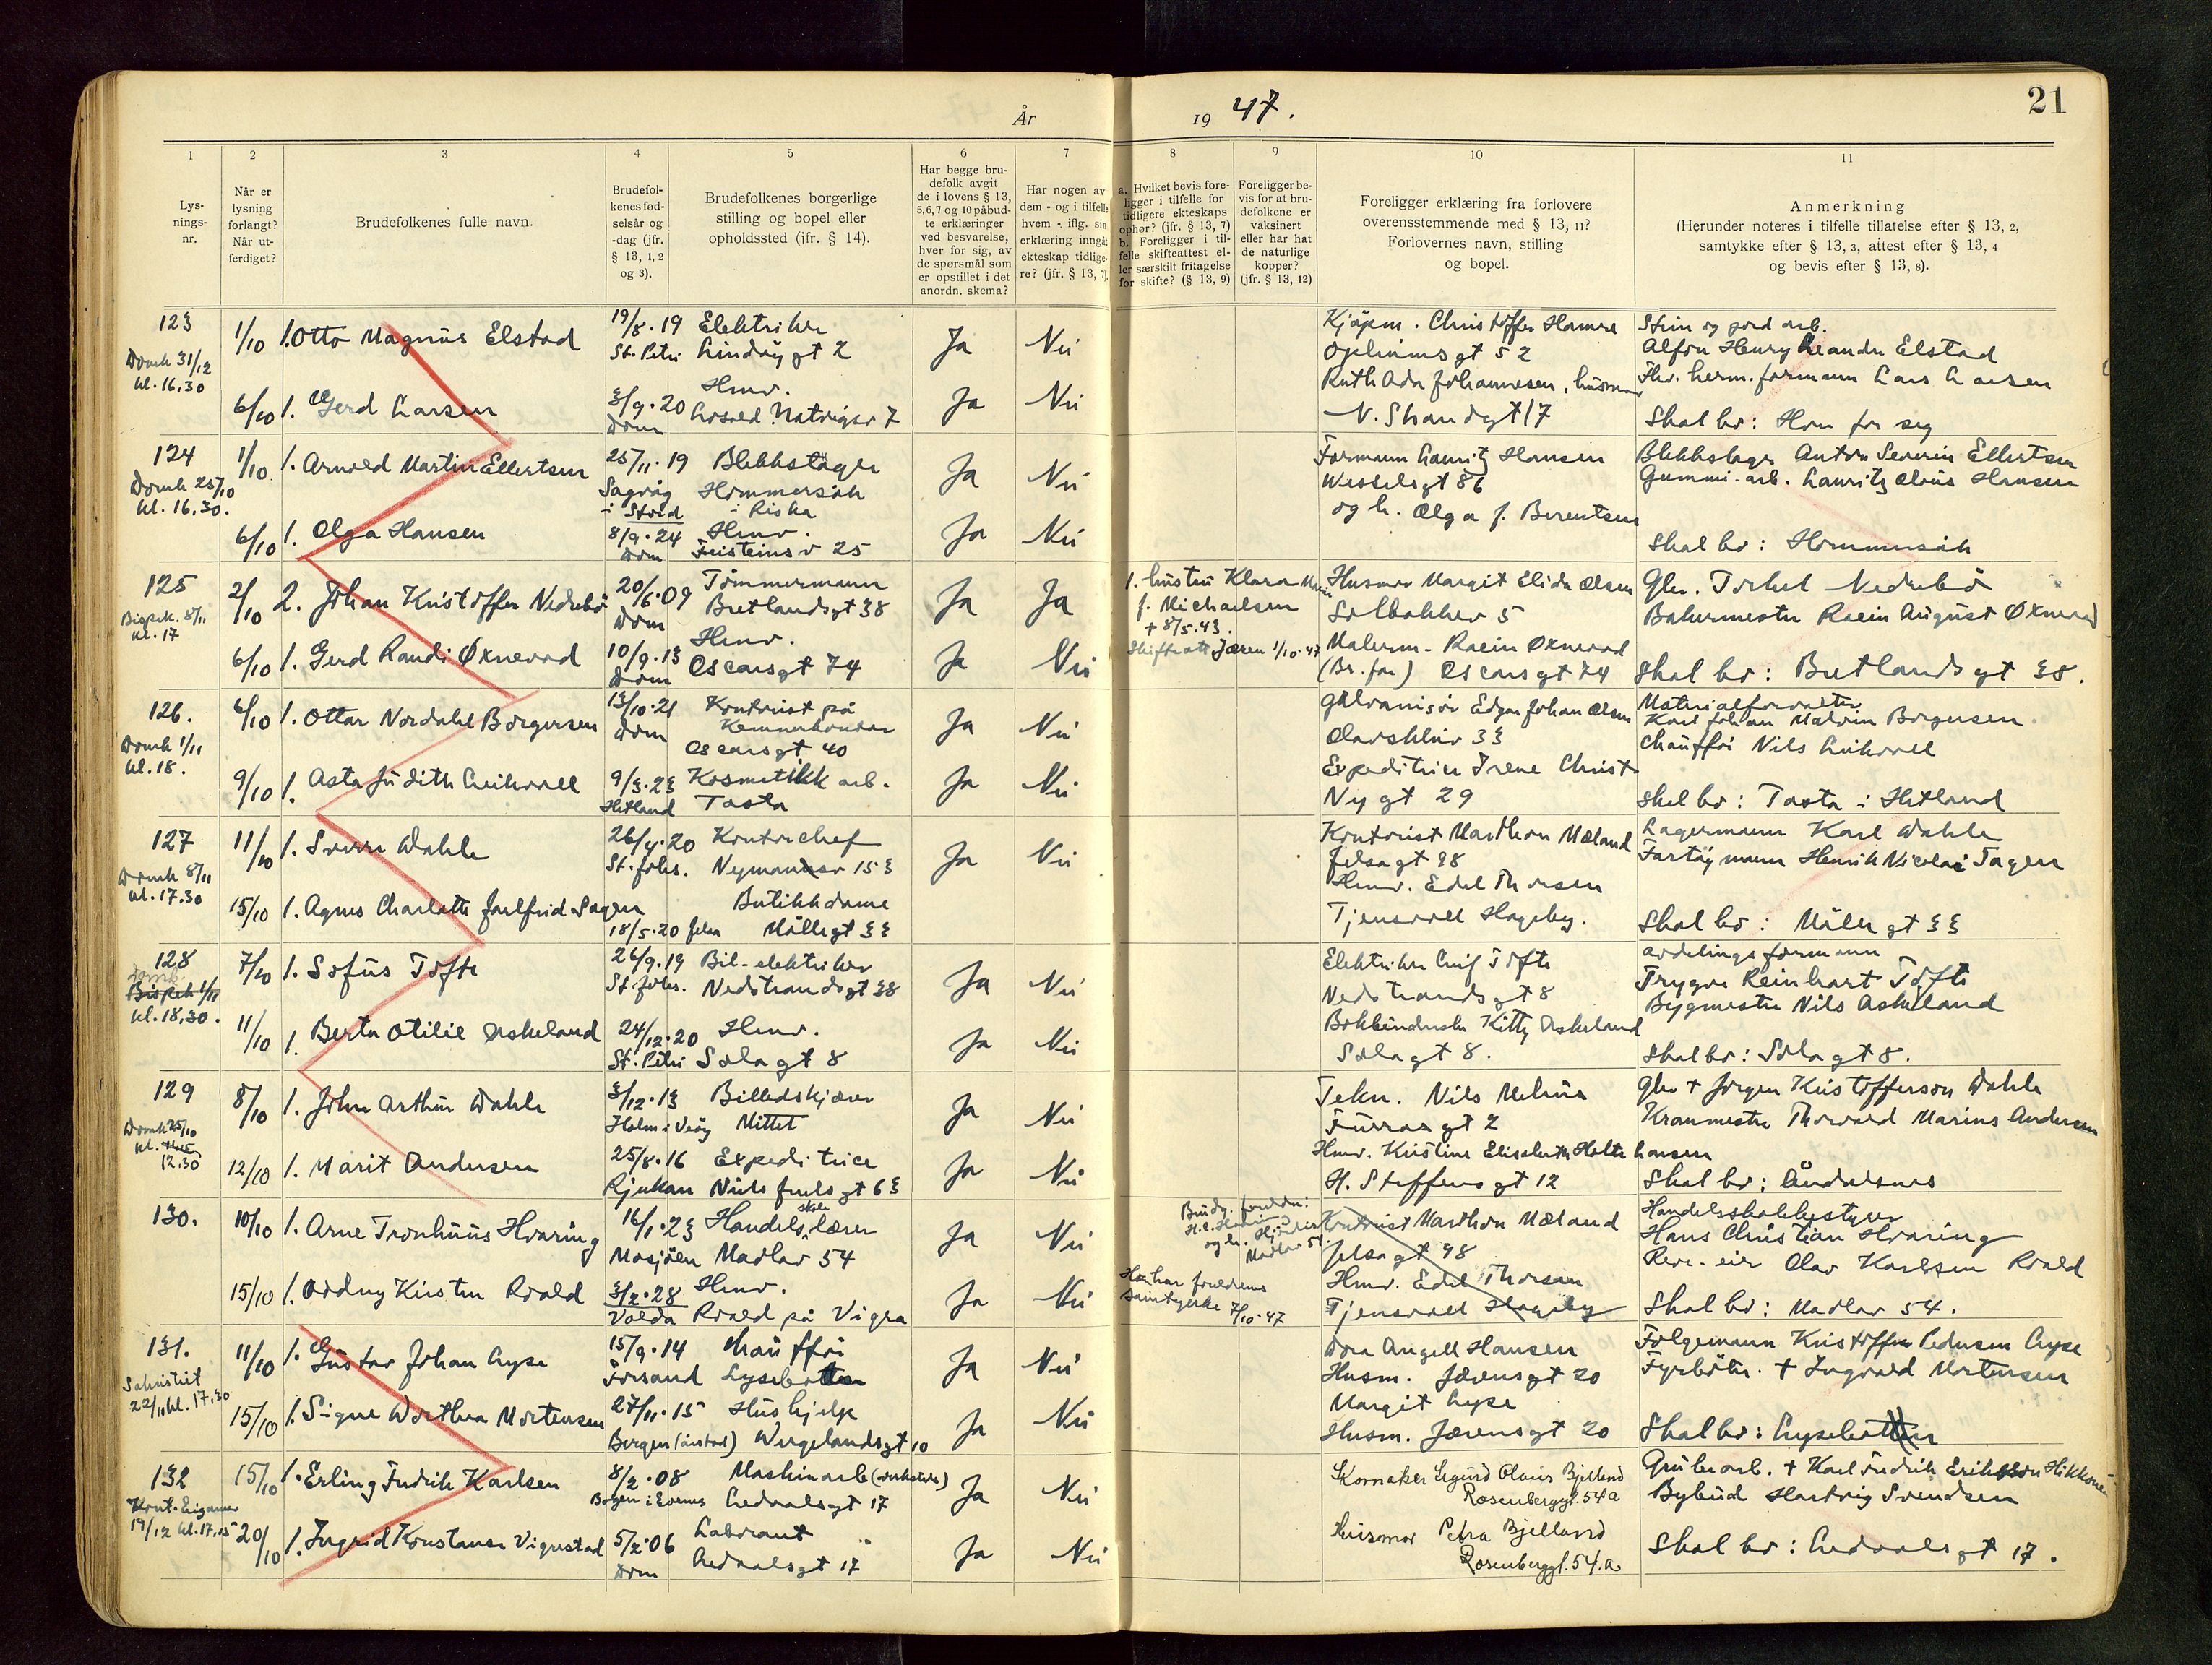 År
19 47.
21
1
2
3
4
5
6
7
8
9
10
11
Lys-
nings-
nr.
Når er
lysning
forlangt?
Når ut-
ferdiget?
Brudefolkenes fulle navn.
Brudefol-
kenes fød-
selsår og
-dag (jfr.
§ 13, 1, 2
og 3).
Brudefolkenes borgerlige
stilling og bopel eller
opholdssted (ifr. § 14).
Har begge bru-
defolk avgit
de i lovens § 13,
5,6,7 og 10 påbud-
te erklæringer
ved besvarelse,
hver for sig, av
de spørsmål som
er opstillet i det
anordn. skema?
Har nogen av
dem - og i tilfelle
hvem - iflg. sin
erklæring inngåt
ekteskap tidlige-
re? (jfr. § 13, 7).
a. Hvilket bevis fore-
ligger i tilfelle for
tidligere ekteskaps
ophør? (jfr. § 13, 7)
b. Foreligger i til-
felle skifteattest el-
ler særskilt fritagelse
for skifte? (§ 13, 9)
Foreligger be-
vis for at bru-
defolkene er
vaksinert
eller har hat
de naturlige
kopper?
(jfr. § 13, 12)
Foreligger erklæring fra forlovere
overensstemmende med § 13, 11?
Forlovernes navn, stilling
og bopel.
Anmerkning
(Herunder noteres i tilfelle tillatelse efter § 13, 2,
samtykke efter § 13, 3, attest efter § 13, 4
og bevis efter § 13, 8).
123
Domk 31/12
kl. 16.30
1/10 1. Otto Magnus Elstad
19/8.19 Elektriker
St. Petri Lindøygt 2
Ja Nei
Kjøpm. Christoffer Hamre
52
Ruth Ada Johannesen, husmor
N. Strandgt 17
Stein og jord arb.
Alfon Henry Leander Elstad
Hev. herm. formann Lars Larsen
Skal bo: Hver for seg
6/10 1. Gerd Larsen
3/9.20 Hmv.
Dom 7
Ja Nei
124
Domk 25/10
kl. 16.30.
1/10 1. Arnold Martin Ellertsen
25/11.19 Blikkslager
Sagvåg Hommersåk
i Stord i Riska
Ja Nei
Formann Lauritz Hansen
Wesselsgt 86
og h. Olga f. Berentsen
Blikkslager Anton Severin Ellertsen
Gummi-arb. Lauritz Olaus Hansen
Skal bo: Hommersåk
6/10 1. Olga Hansen
8/9.24 Hmv.
Dom Feisteinsv 25
Ja Nei
125
Bispek. 8/11
kl. 17
2/10 2. Johan Kristoffer Nedrebø
20/6.09 Tømmermann
Dom Bretlandsgt 38
Ja Ja
1. hustru Klara Marie
f. Michaelsen
+ 8/5.43.
Skifteatt Jæren 1/10.47
Husmor Margit Elida Olsen
Solbakkev 5
Malerm. Raein Øxnevad
(Br. far) Oscarsgt 74
Gbr. Torkel Nedrebø
Bakermester Raein August Øxnevad
Skal bo: Bretlandsgt 38.
6/10 1. Gerd Randi Øxnevad
10/9.13 Hmv.
Dom Oscarsgt 74
Ja Nei
126.
Domk 1/11
kl. 18.
6/10 1. Ottar Nordahl Borgersen
13/10.21 Kontorist på
Dom Kemnerkontor
Oscarsgt 40
Ja Nei
Galvanisør Edgar Johan Olsen
Olavskleiv 33
Expeditrise Irene Christ
Ny gt 29
Materialforvalter
Karl Johan Malvin Borgersen
Chauffør Nils Leikvoll
Skal bo: Tasta i Hetland
9/10 1. Asta Judith Leikvoll
9/3.23 Kosmetikk arb.
Hetland Tasta
Ja Nei
127
Domk 8/11
kl. 17.30
11/10 1. Sverre Dahle
26/4.20 Kontorchef
St. Johs. Nymansv 153
Ja Nei
Kontorist Marthon Mæland
Jelsagt 98
Hmv. Edel Thorsen
Tjensvoll Hageby.
Lagermann Karl Dahle
Fartøymann Henrik Nicolai Tagen
Skal bo: Møllergt 33
15/10 1. Agnes Charlotte Jarlfrid Tagen
Butikkdame
18/5.20 Jelsa Møllegt 33
128
Domk
Bispek 1/11
kl. 18,30.
7/10 1. Sofus Tofte
26/9.19 Bil-elektriker
St. Johs. Nedstrandsgt 38
Ja Nei
Elektriker Leif Tofte
Nedstrandsgt 8
Bokbinderske Kitty Askeland
Solagt 8.
avdelingsformann
Trygve Reinhart Tofte
Bygmester Nils Askeland
Skal bo: Solagt 8.
11/10 1. Berta Otilie Askeland
24/12.20 Hmv.
St. Petri Solagt 8
Ja Nei
129
Domk 25/10
kl.
12.30
8/10 1. John Arthur Dahle
3/12.13 Billedskjærer
Holm i Veøy Mittet
Ja Nei
Tekn. Nils Melhus
Furrasgt 2
Hmv. Kristine Elisabeth Holte Larsen
H. Steffensgt 12
Gbr + Jørgen Kristofferson Dahle
Kranmester Thorvald Marius Andersen
Skal bo: Åndalsnes
12/10 1. Marit Andersen
25/8.16 Expeditrice
Rjukan Niels Juelsgt 63
Ja Nei
130.
10/10 1. Arne Tronhuus Hvaring
16/1.23 Handelsskolelærer
Mosjøen Madlav 54
Ja Nei
Brudg. foreldre:
Madlav 54.
Kontorist Marthon Mæland
Jelsagt 98
Hmv. Edel Thorsen
Tjensvoll Hageby
Handelsskolebestyrer
Hans Christian Hvaring
Rere.-eier Olav Karlsen Roald
Skal bo: Madlav 54.
15/10 1. Oddny Kirsten Roald
3/2.28 Hmv.
Volda Roald på Vigra
Ja Nei
Hun har foreldrenes
samtykke 7/10.47
131.
Sakristiet
22/11 kl. 17,30
11/10 1. Gustav Johan Lyse
15/9.14 Chauffør
Forsand Lysebotten
Ja Nei
Dora Angell Hansen
Husm. Jærensgt 20
Margit Lyse
Husm. Jærensgt 20
Folgemann Kristoffer Pedersen Lyse
Fyrbøter. + Ingvald Mortensen
Skal bo: Lysebotten
15/10 1. Signe Dorthea Mortensen
27/11.15 Hushjelp
Bergen (Årstad) Wergelandsgt 10
Ja Nei
132
Kont. Eiganes
19/12 kl. 17,15
15/10 1. Erling Fredrik Karlsen
8/2.08 Maskinarb (verksted)
Bogen i Evenes Ledaalsgt 17
Ja Nei
Skomaker Sigurd Olaus Bjelland
Rosenberggt. 54a
Husmor Petra Bjelland
Rosenberggt. 54.a
Grubearb. + Karl Fredrik Erikson Hikkonen
Bybud Hartvig Svendsen
Skal bo: Ledaalsgt 17.
20/10 1. Ingrid Konstanse Vigrestad
5/2.06 Laborant
Dom Ledaalsgt 17
Ja Nei